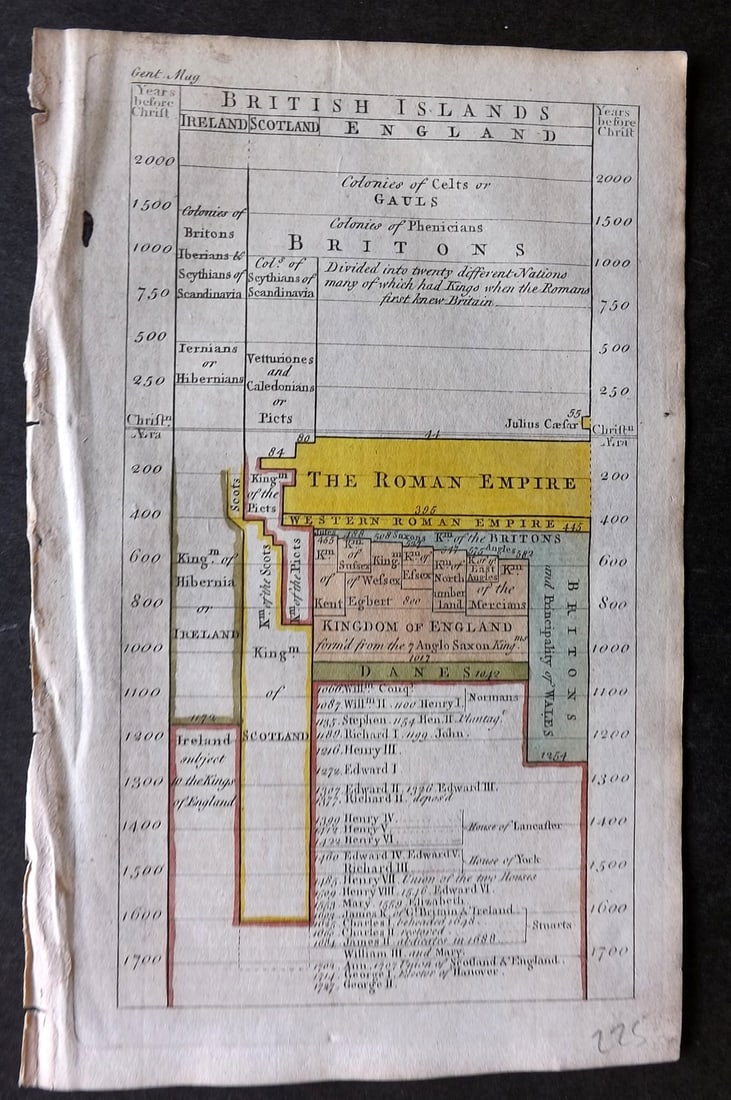 Gent. Mag
Years before Christ
BRITISH ISLANDS
Years before Christ
IRELAND SCOTLAND ENGLAND
2000
1500
1000
750
500
250
Christn Æra
200
400
600
800
1000
1100
1200
1300
1400
1500
1600
1700
Colonies of
Britons
Iberians &
Scythians of
Scandinavia
Iernians
or
Hibernians
Scots
Kingm. of
Hibernia
or
IRELAND
1172
Ireland
subject
to the Kings
of England
Cols of
Scythians of
Scandinavia
Vetturiones
and
Caledonians
or
Picts
80
84
Kingm
of the
Picts
Km of the Scots
Km of the Picts
Kingm
of
SCOTLAND
Colonies of Celts or
GAULS
Colonies of Phenicians
BRITONS
Divided into twenty different Nations
many of which had Kings when the Romans
first knew Britain
55
Julius Cæsar
44
THE ROMAN EMPIRE
395
WESTERN ROMAN EMPIRE 445
Km of the BRITONS
Saxons
Angles
582
Km
of
Kent
Km
of
Sussex
Kingm
of Wessex
Egbert 800
Km of
Essex
Km of
North
umber
land
East
Angles
Km
of the
Mercians
KINGDOM OF ENGLAND
form'd from the 7 Anglo Saxon Kingms
1017
DANES 1042
BRITONS
and Principality of WALES
1254
1066 Willm Conqr
1087 Willm II 1100 Henry I.
Normans
1135 Stephen. 1154 Hen. II. Plantagt
1189 Richard I. 1199 John.
1216 Henry III.
1272 Edward I
1307 Edward II. 1326 Edward III.
1377 Richard II. depos'd
1399 Henry IV.
1412 Henry V.
1422 Henry VI.
House of Lancaster
1460 Edward IV. Edward V.
Richard III
House of York
1485 Henry VII Union of the two Houses
1509 Henry VIII. 1546 Edward VI.
1553 Mary. 1559 Elizabeth
James K. of Gt Britain & Ireland.
1625 Charles I beheaded 1648.
Charles II restored
1684 James II abdicates in 1688
Stuarts
William III and Mary.
1702 Ann. 1707 Union of Scotland & England.
1714 George I. Elector of Hanover.
1727 George II.
2000
1500
1000
750
500
250
Christn Æra
200
400
600
800
1000
1100
1200
1300
1400
1500
1600
1700
225